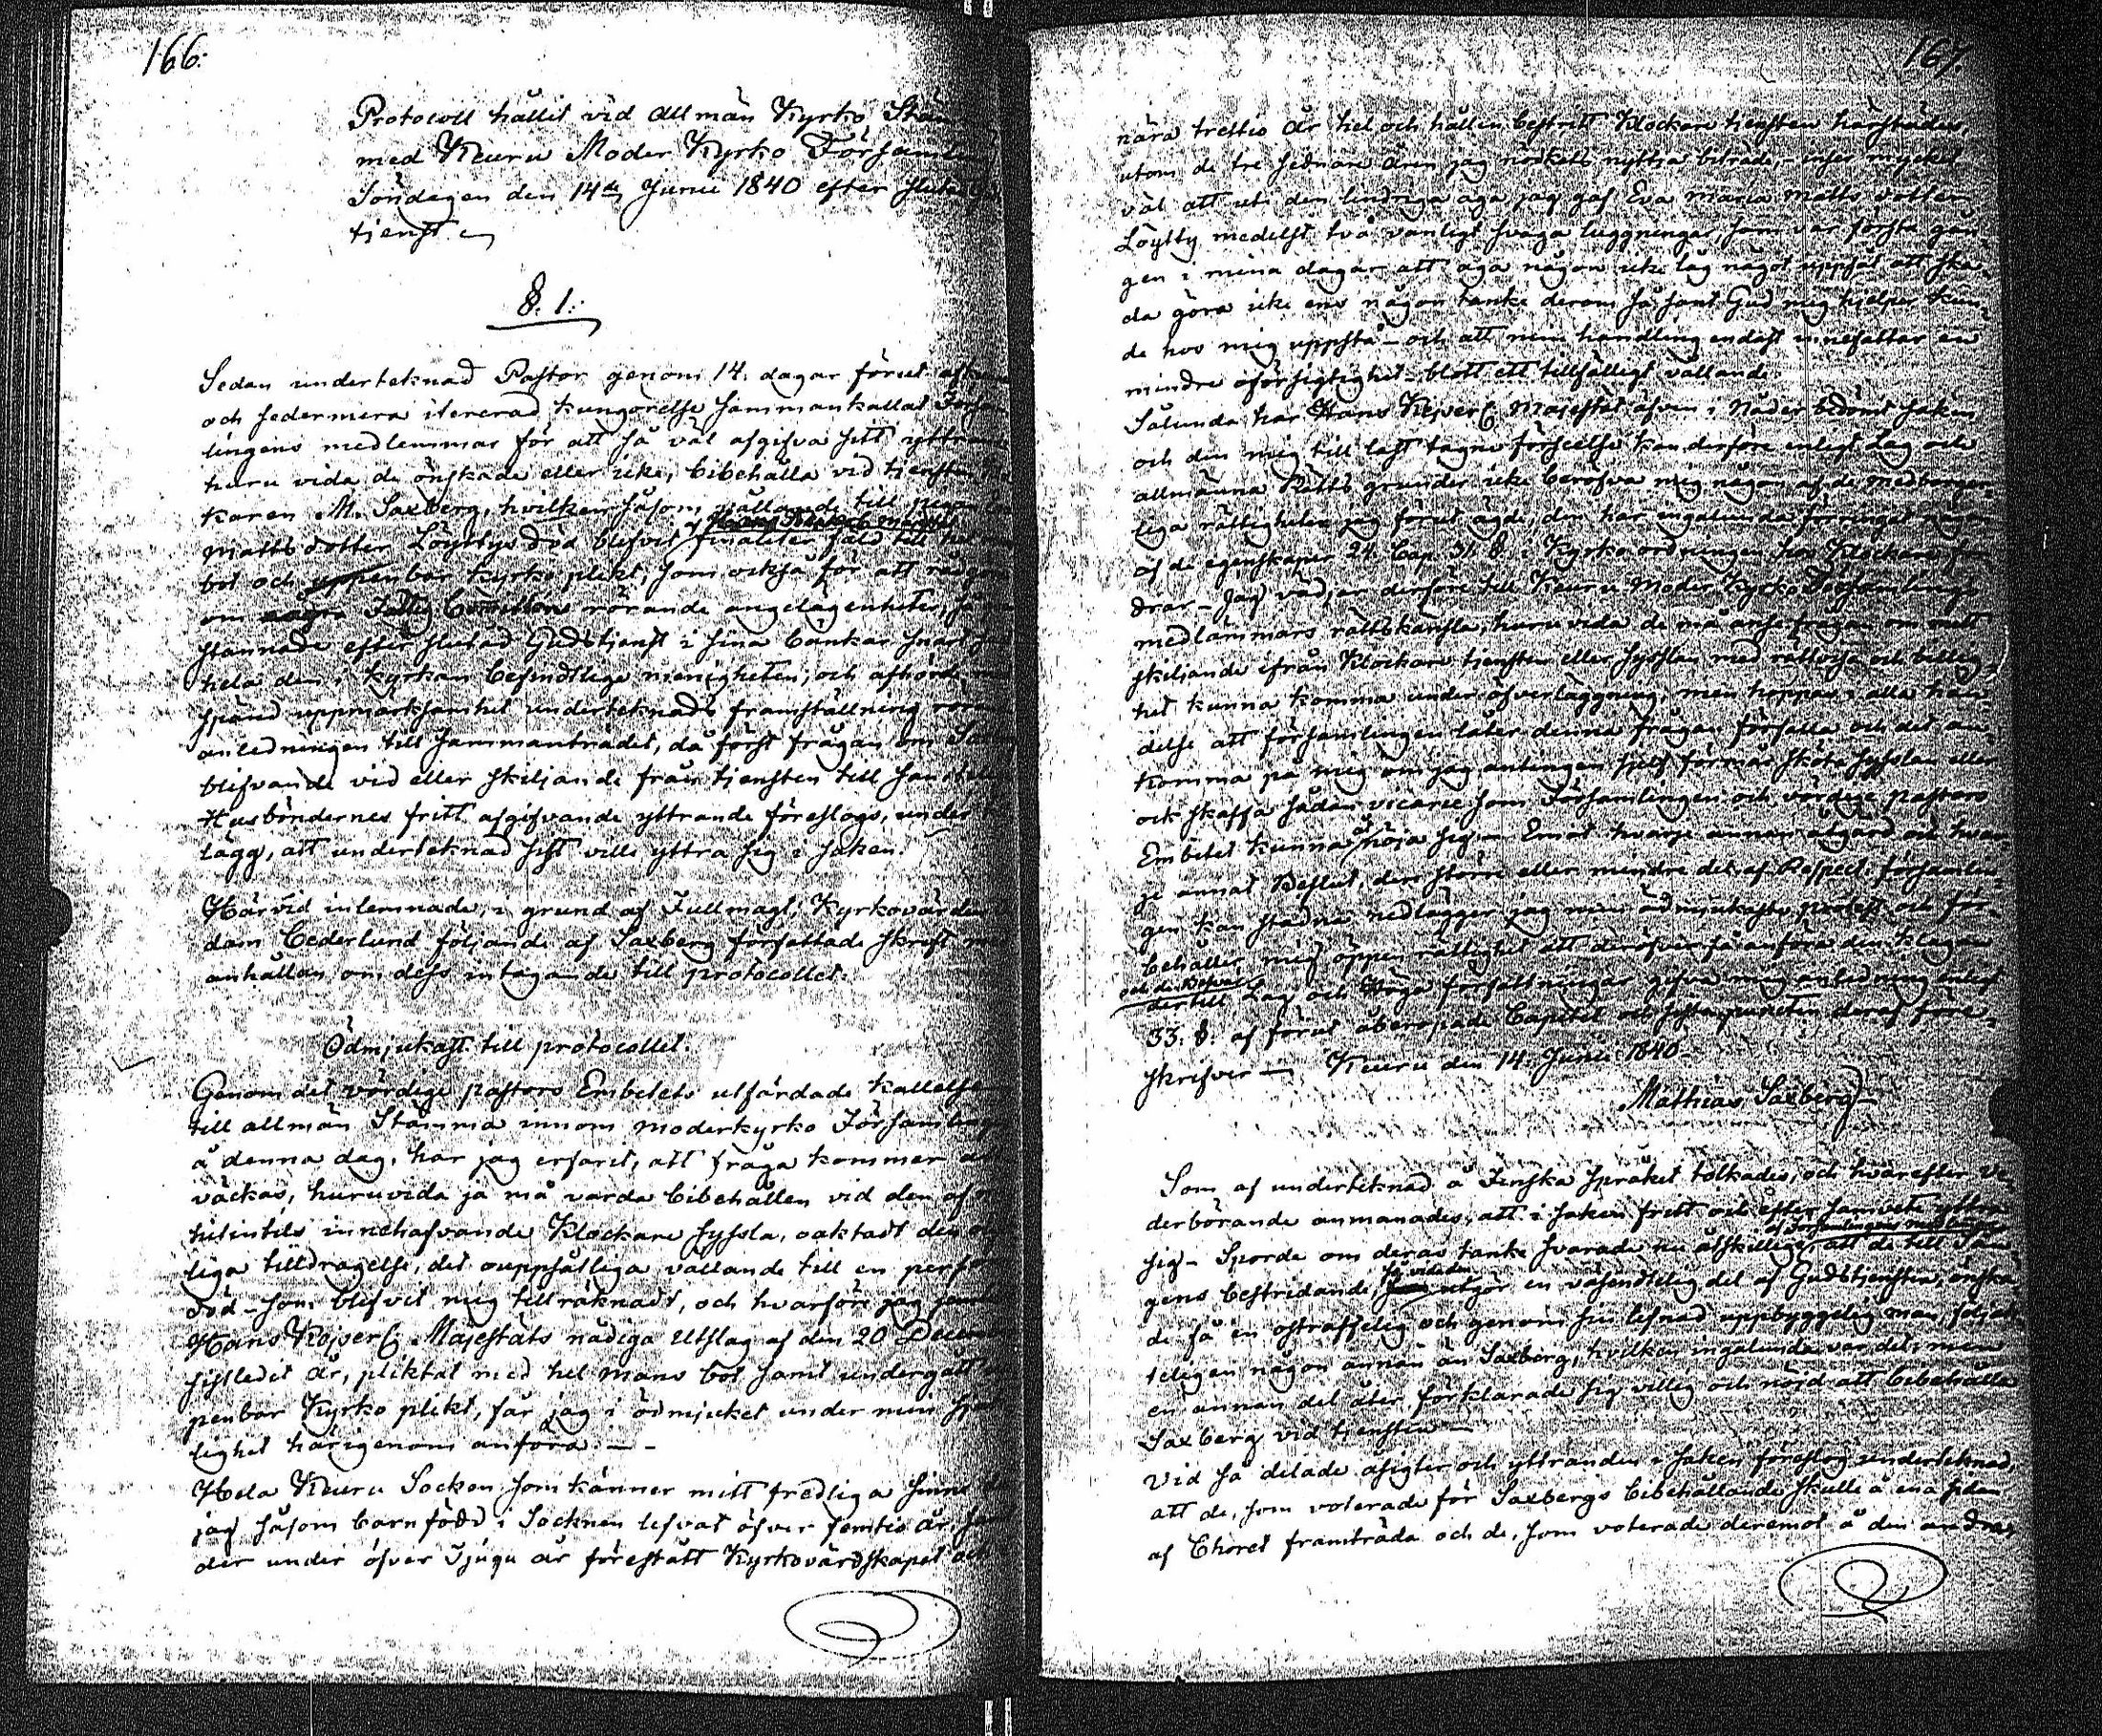 166.
Protocoll hållit vid allmän Kyrko Stäm
med Keuru Moder Kyrko Församl
Söndagen den 14de Junii 1840 efter slutad
tjenst.
§. 1.
Sedan undertecknad Pastor genom 14. dagar förut
och sedermera itererad kungörelse sammankallat Försam
lingens medlemmar för att så väl afgifva sitt yttran
huru vida de önskade eller icke, bibehålla vid tjensten
karen M. Saxberg, hvilken såsom vållande till pigan
Mattsdotter Löyttys död blifvit finaliter fäld till hel
bot och uppenbar kyrko plikt, som också för att rådgöra
om Fattig rörande angelägenheter, så
stannade efter slutad Gudstjenst i sina bänkar snart
hela den i Kyrkan befindtliga menigheten, och afhörde
spänd uppmärksamhet undertecknads framställning röran
anledningen till sammanträdet, då först frågan om Saxb
blifvande vid eller skiljande från tjensten till
Husböndernes fritt afgifvande yttrande föreslogs, under
lägg, att undertecknad sist ville yttra sig i saken.
Härvid inlemnade, i grund af Fullmagt, Kyrkovärden
dam Cederlund följande af Saxberg författade skrift
anhållan om dess intagande till protocollet.
Ödmjukast till protocollet.
Genom det vördige pastors Embetets utfärdade kallelse
till allmän Stämma innom moderkyrko Församling
å denna dag, har jag erfarit, att fråga kommer
väckas, huruvida ja må varda bibehållen vid den af
hitintils innehafvande Klockare syssla, oaktadt den
liga tilldragelse, det ouppsåtliga vållande till en
död - som blifvit mig tillräknadt, och hvarföre jag
Hans Kejserl. Majestäts nådiga Utslag af den 20 Decem
sistledit år, pliktat med hel mans bot samt undergått
penbar Kyrko plikt, får jag i ödmjukhet under min
lighet härigenom anföra: —
Hela Keuru Socken som känner mitt fredliga sinne
jag såsom barnfödd i Socknen lefvat öfver femtio år
der under öfver tjugu år förestått Kyrkovärdskapet och
167.
nära trettio år hel och hållen bestritt Klockare tjensten härstädes,
utom de tre sednare åren jag nödgats nyttja biträde, - inser mycket
väl att uti den lindriga aga jag gaf Eva Maria Mattsdotter
Löytty medelst två vanligt svaga luggningar, som var första gån-
gen i mina dagar att aga någon icke låg något uppsåt att ska-
da göra icke ens någon tanke derom så sant Gud mig hjelper kun-
de hos mig uppstå - och att min handling endast innefattar en
mindre oförsigtighet - blott ett tillfälligt vållande.
Sålunda har Hans Kejserl. Majestät äfven i Nåder bedömt saken
och den mig till last tagne förseelse kan derföre enligt Lag och
allmänna Rätts grunder icke beröfva mig någon af de medborger-
liga rättigheter jag förut ägde; den har ingalunda förringat någon
af de egenskaper 24. Cap. 31. §. i Kyrko ordningen hos Klockare for-
drar - Jag vädjar derföre till Keuru Moder Kyrko Församlings
medlemmars rättskänsla, huruvida de må anse frågan om mitt
skiljande ifrån Klockare tjensten eller sysslan med rättvisa och billig-
het kunna komma under öfverläggning, men hoppas i alla hän-
delse att församlingen låter denna frågan förfalla och det an-
komma på mig om jag antingen sjelf förmår sköta sysslan eller
ock skaffa sådan vicarie som Församlingen och vördige pastors
Embetet kunna åtnöja sig - Emot hvarje annan åtgärd och hvar-
je annat Beslut, den större eller mindre del af Respect. församlin-
gen kan stadna nedlägger jag min ödmjukaste protest och för-
behåller mig öppen rättighet att deröfver få anföra den klagan
och de Besvär
dertill Lag och Höga författningar gifva mig anledning enligt
33. §. af förut åberopade Capitel och sista puncten deraf före-
skrifver — Keuru den 14. Junii 1840.
Mathias Saxberg
Som af undertecknad å Finska språket tolkades, och hvarefter ve-
derbörande anmanades, att i saken fritt och efter samvete yttra
af Församlingens medlemmar
sig - Sporde om deras tanke svarade nu åtskillige, att de till Sån-
så vida den
gens bestridande, utgör en väsendtelig del af Gudstjensten, önska-
de få en ostraffelig och genom sin lefnad uppbyggelig man, följak-
teligen någon annan än Saxberg, hvilken ingalunda var det; men
en annan del åter, förklarade sig villig och nöjd att bibehålla
Saxberg vid tjensten —
Vid så delade åsigter och yttranden i saken föreslog undertecknad,
att de, som voterade för Saxbergs bibehållande skulle å ena sidan
af Choret framträda och de, som voterade deremot å den andra,